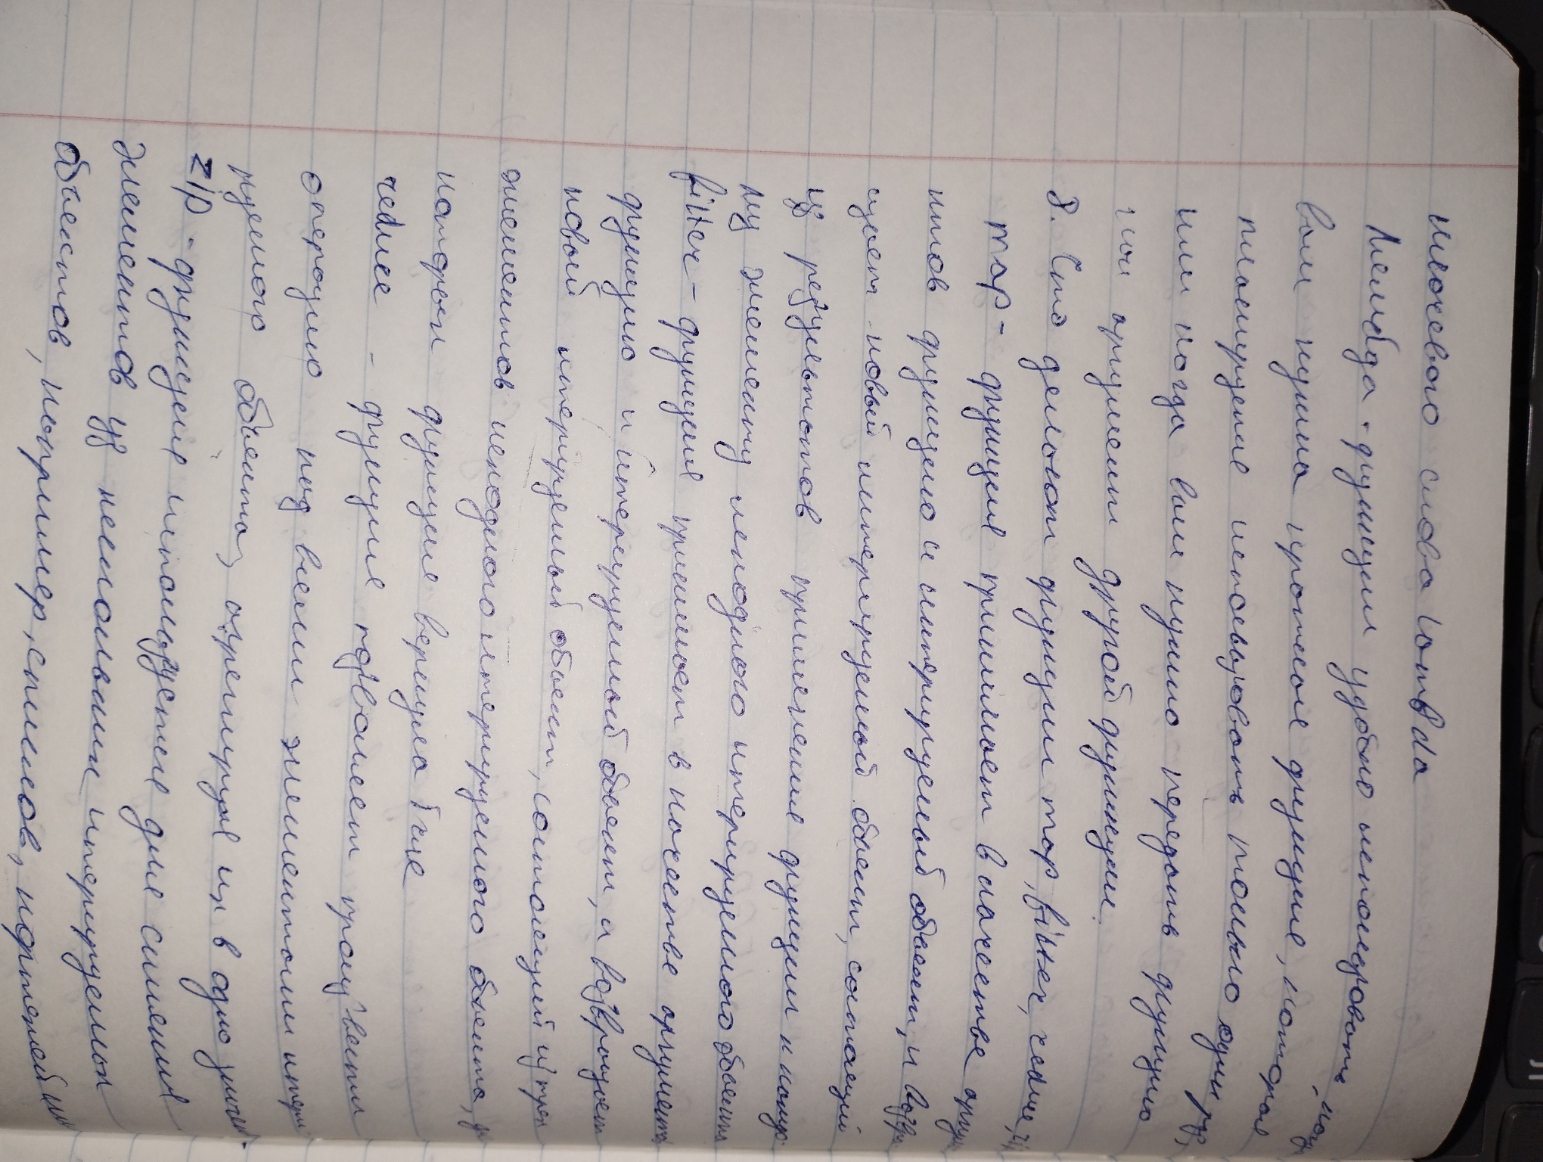 ключевого слова lambda
Лямбда-функции удобно использовать, когда
вам нужна краткая функция, которая
планируется использовать только один раз,
или когда вам нужно передать функцию
как аргумент другой функции.
8. Что делают функции map, filter, reduce, zip
map - функция принимает в качестве аргуме
нтов функцию и итерируемый объект, и возвра
щает новый итерируемый объект, состоящий
из результатов применения функции к каждо-
му элементу исходного итерируемого объекта
filter - функция принимает в качестве аргументов
функцию и итерируемый объект, и возвращает
новый итерируемый объект, состоящий из трех
элементов исходного итерируемого объекта, для
которых функция вернула True
reduce - функция позволяет произвести
операцию над всеми элементами итери
руемого объекта, агрегируя их в одно значен-
zip - функция используется для слияния
элементов из нескольких итерируемых
объектов, например, списков, кортежей или